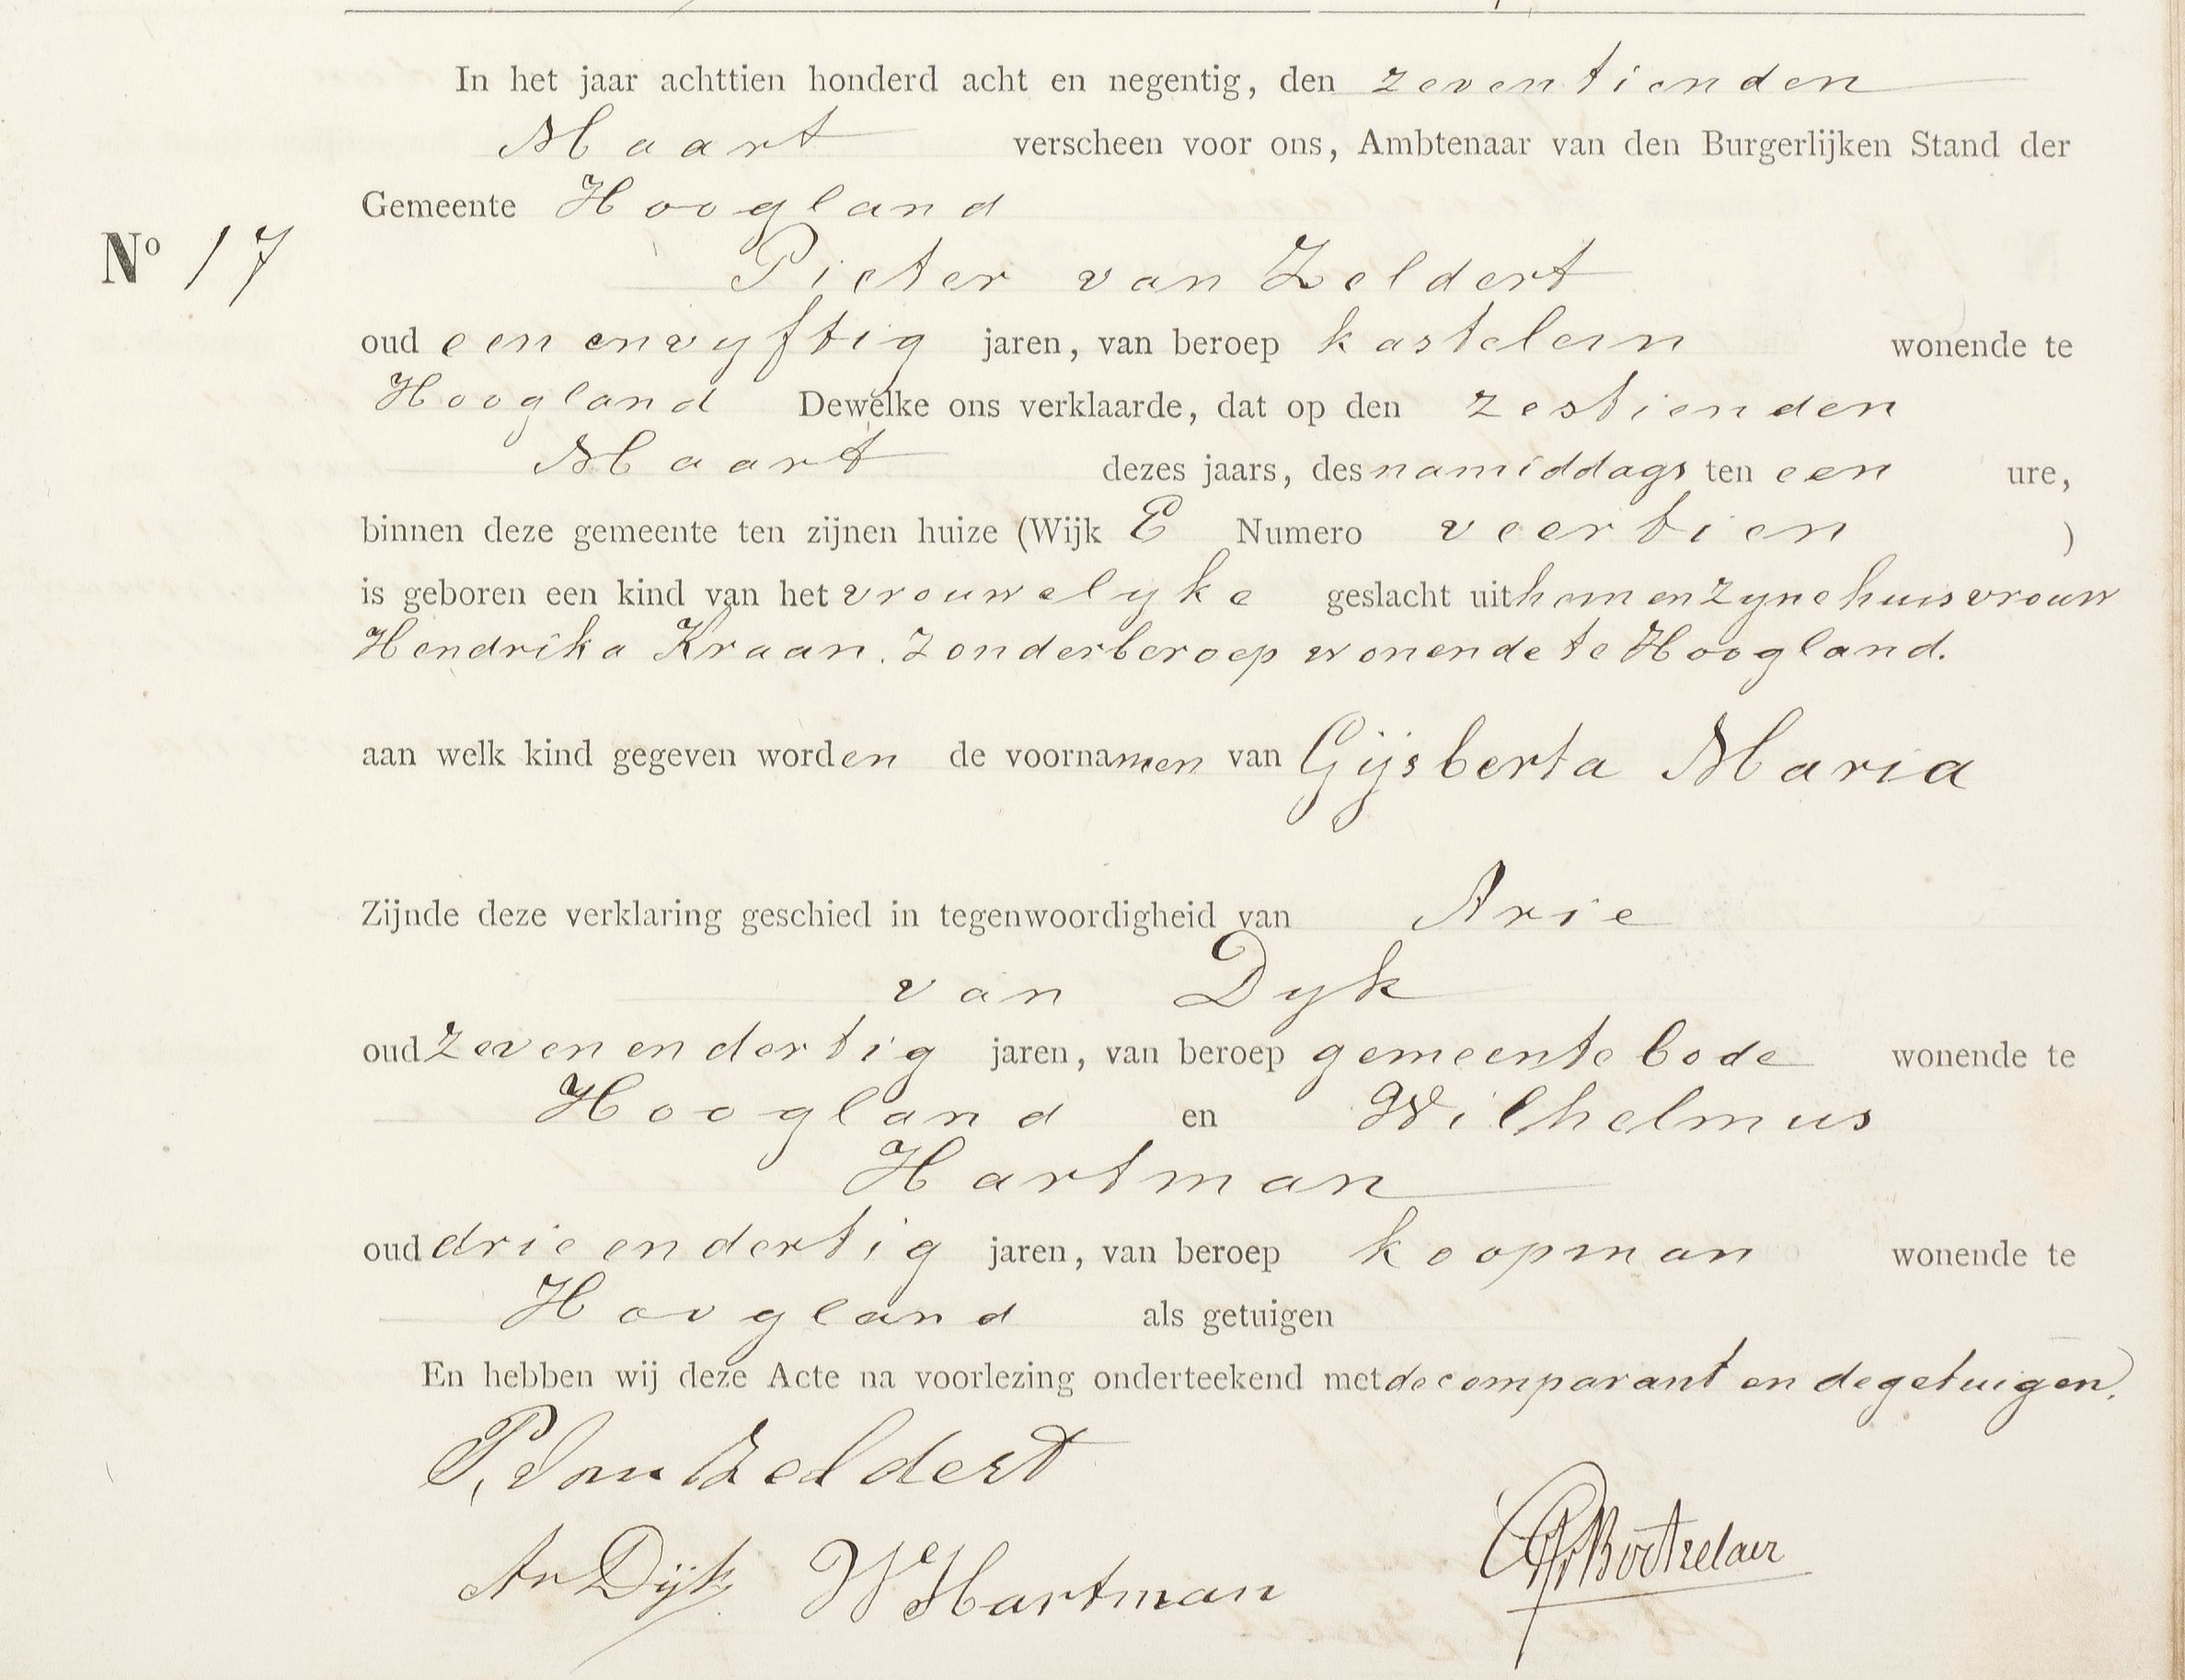 In het jaar achttien honderd acht en negentig, den zeventienden
Maart verscheen voor ons, Ambtenaar van den Burgerlijken Stand der
Gemeente Hoogland
No 17
Pieter van Zeldert
oud een en vyftig jaren, van beroep kastelein wonende te
Hoogland Dewelke ons verklaarde, dat op den zestienden
Maart dezes jaars, des namiddags ten een ure,
binnen deze gemeente ten zijnen huize (Wijk E Numero veertien )
is geboren een kind van het vrouwelyke geslacht uit hem en zyne huisvrouw
Hendrika Kraan. Zonder beroep wonende te Hoogland.
aan welk kind gegeven worden de voornamen van Gijsberta Maria
Zijnde deze verklaring geschied in tegenwoordigheid van Arie
van Dyk
oud zeven en dertig jaren, van beroep gemeente bode wonende te
Hoogland en Wilhelmus
Hartman
oud drie en dertig jaren, van beroep koopman wonende te
Hoogland als getuigen
En hebben wij deze Acte na voorlezing onderteekend met de comparant en de getuigen.
P. van Zeldert
Av Dijk W Hartman